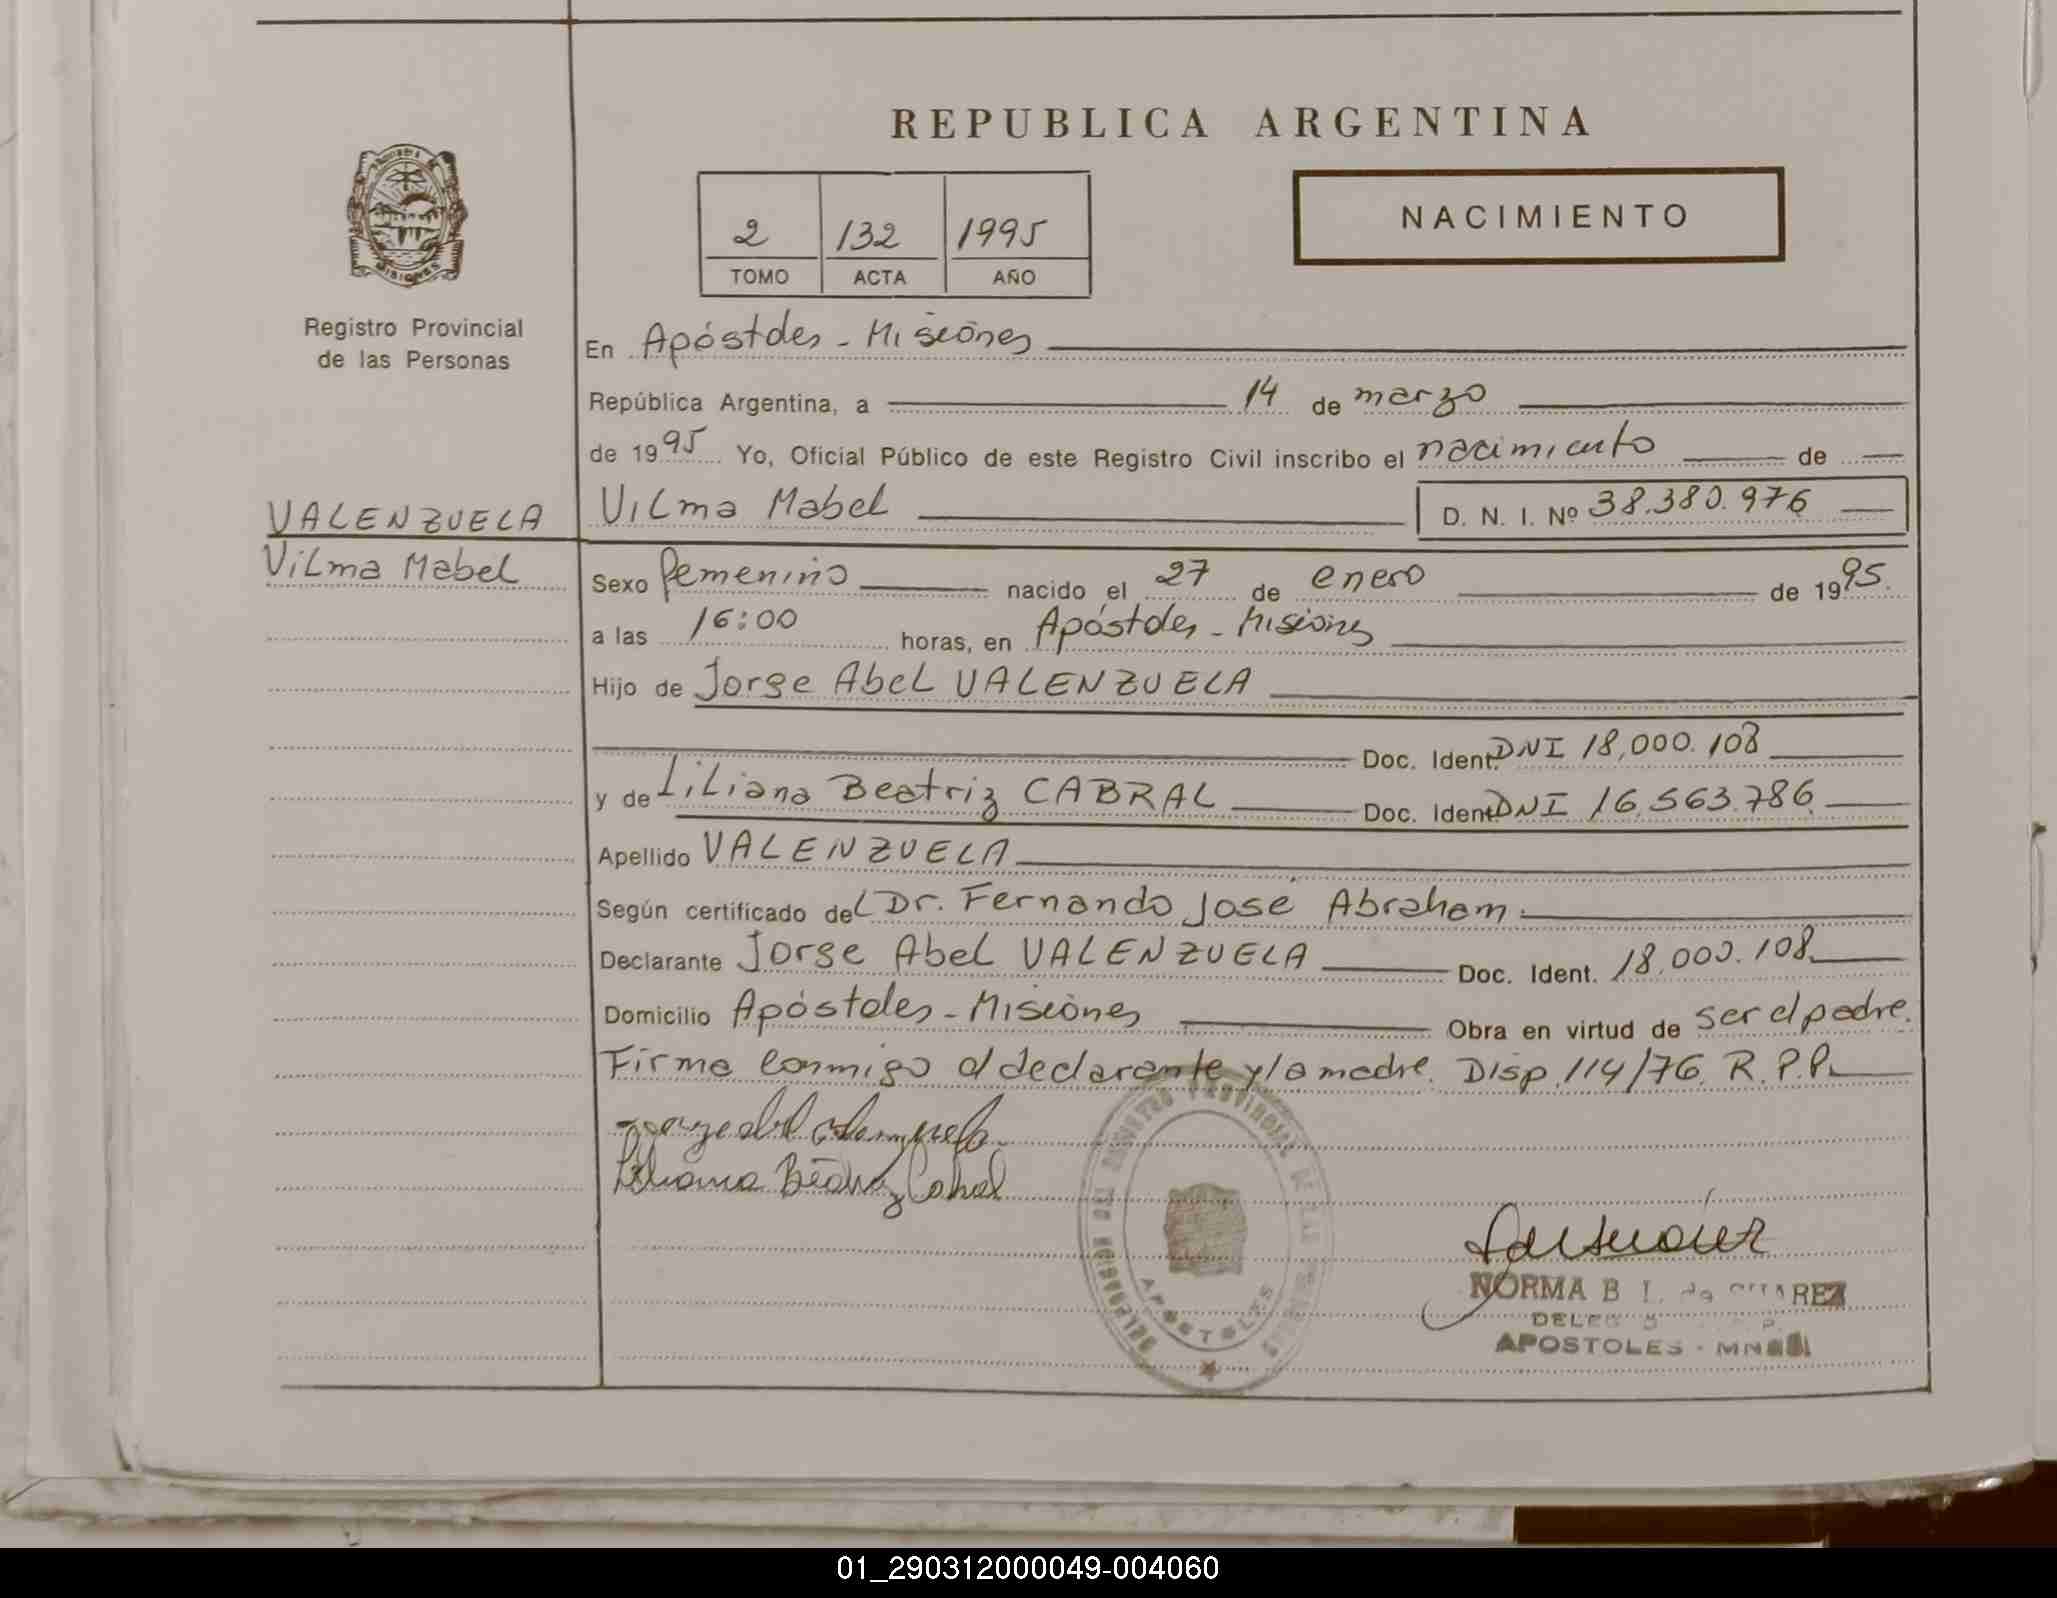 REPUBLICA ARGENTINA
NACIMIENTO
2 132 1995
TOMO ACTA AÑO
MISIONES
Registro Provincial
de las Personas
En Apóstoles - Misiones
República Argentina, a 14 de marzo
de 1995 Yo, Oficial Público de este Registro Civil inscribo el nacimiento de
VALENZUELA
Vilma Mabel
Vilma Mabel D. N. I. Nº 38.380.976
Sexo femenino nacido el 27 de enero de 1995.
a las 16:00 horas, en Apóstoles - Misiones
Hijo de Jorge Abel VALENZUELA
Doc. Ident. DNI 18,000.108
y de Liliana Beatriz CABRAL Doc. Ident. DNI 16.563.786
Apellido VALENZUELA
Según certificado del Dr. Fernando José Abraham.
Declarante Jorge Abel VALENZUELA Doc. Ident. 18.000.108
Domicilio Apóstoles - Misiones Obra en virtud de ser el padre.
Firma conmigo el declarante y la madre. Disp. 114/76. R.P.P.
Liliana Beatriz Cabral
DELEGACION DEL REGISTRO PROVINCIAL DE LAS PERSONAS
APOSTOLES
NORMA B I. de SUAREZ
APOSTOLES - MNES
01_290312000049-004060